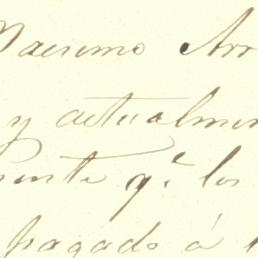 Maximo Arr
y actualmen
qe. los
pagado á